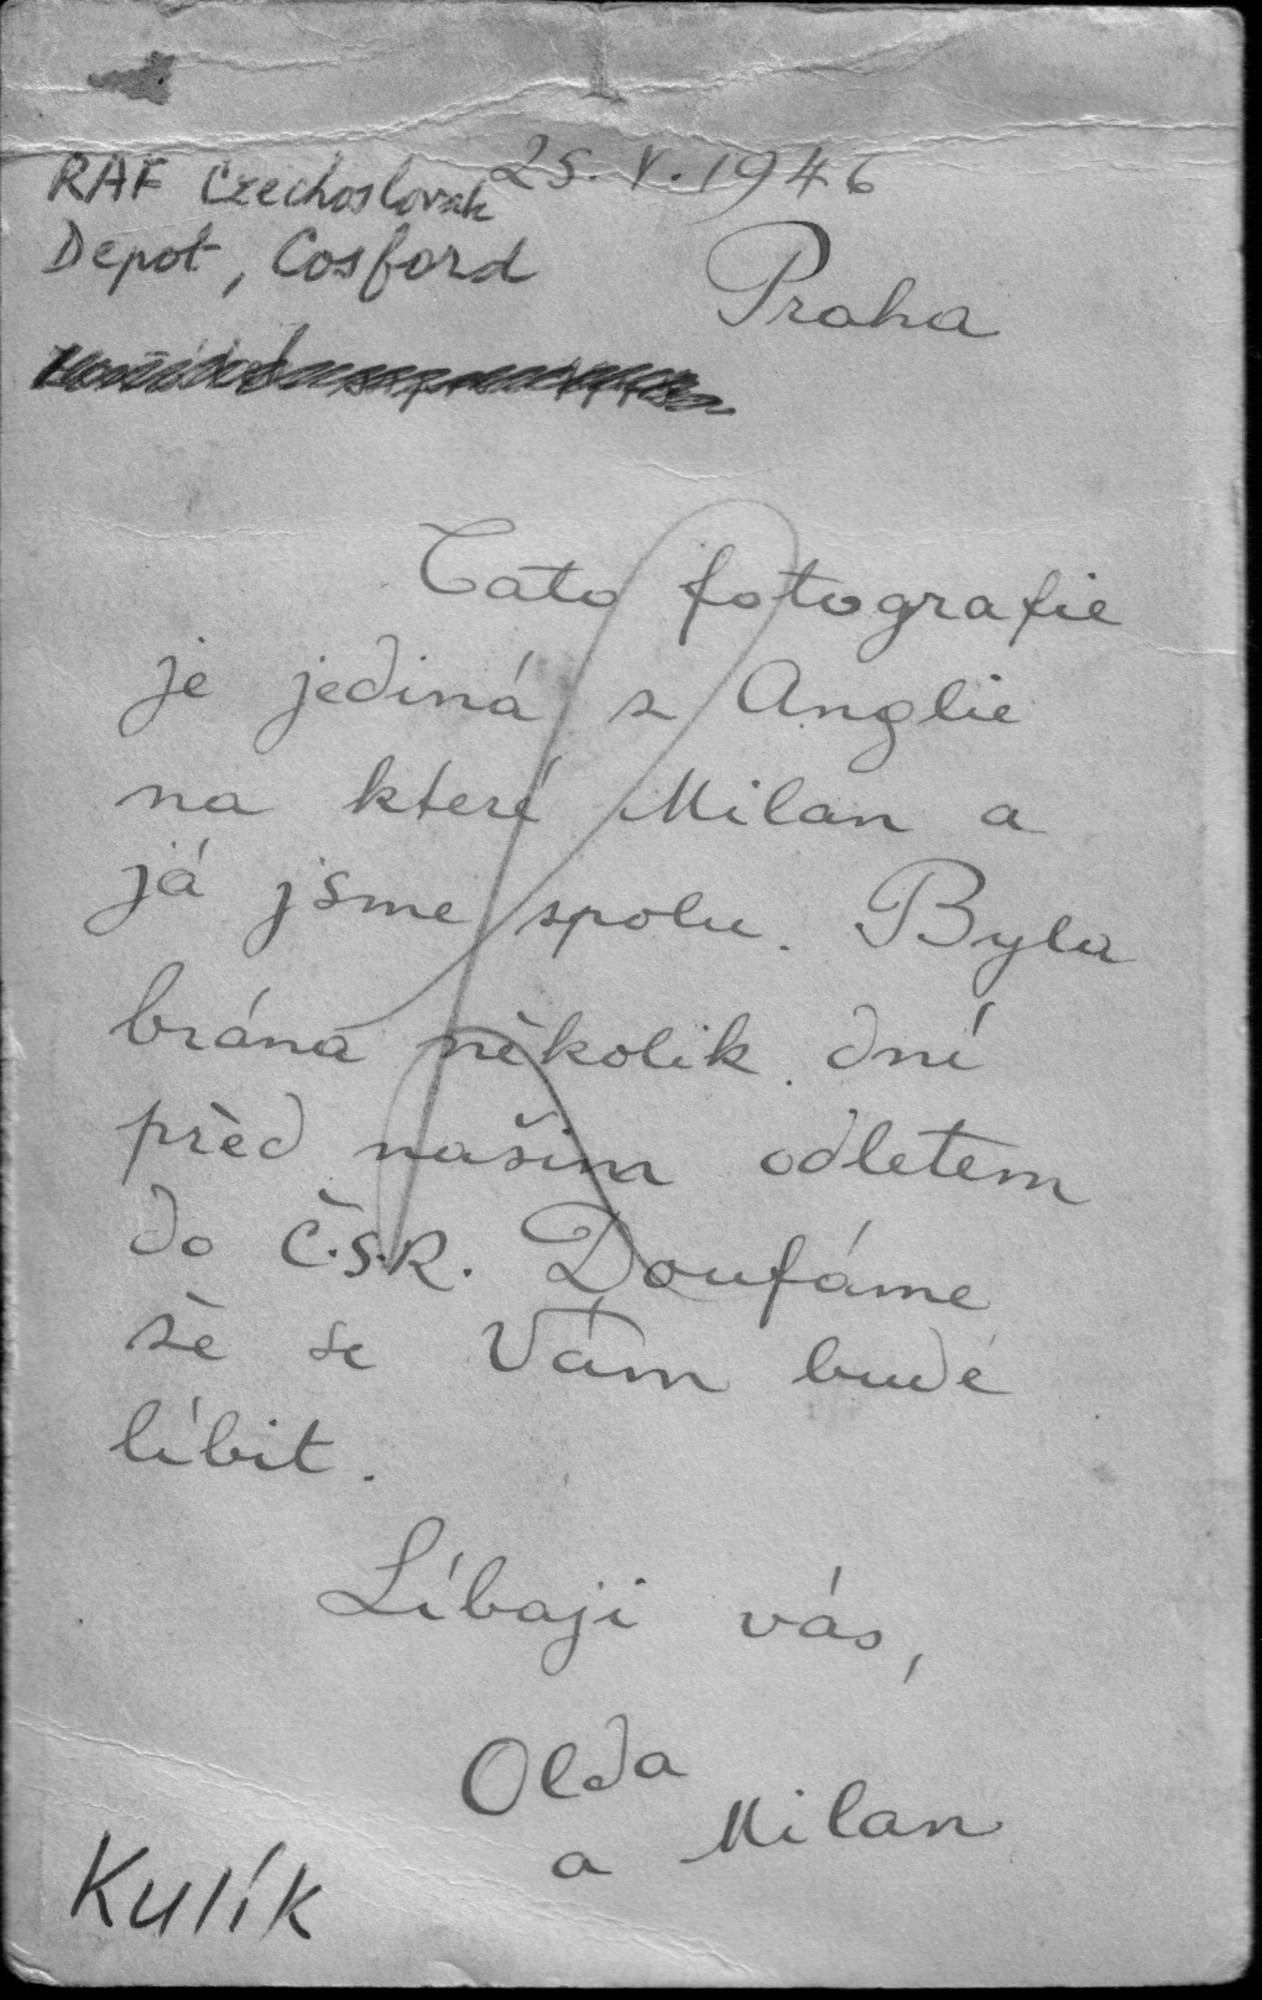 RAF Czechoslovak 25. V. 1946
Depot, Cosford
Praha
Tato fotografie
je jediná z Anglie
na které Milan a
já jsme spolu. Byla
brána několik dní
před našim odletem
do Č.S.R. Doufáme
že se Vám bude
líbit.
Líbaji vás,
Olda
a Milan
Kulík